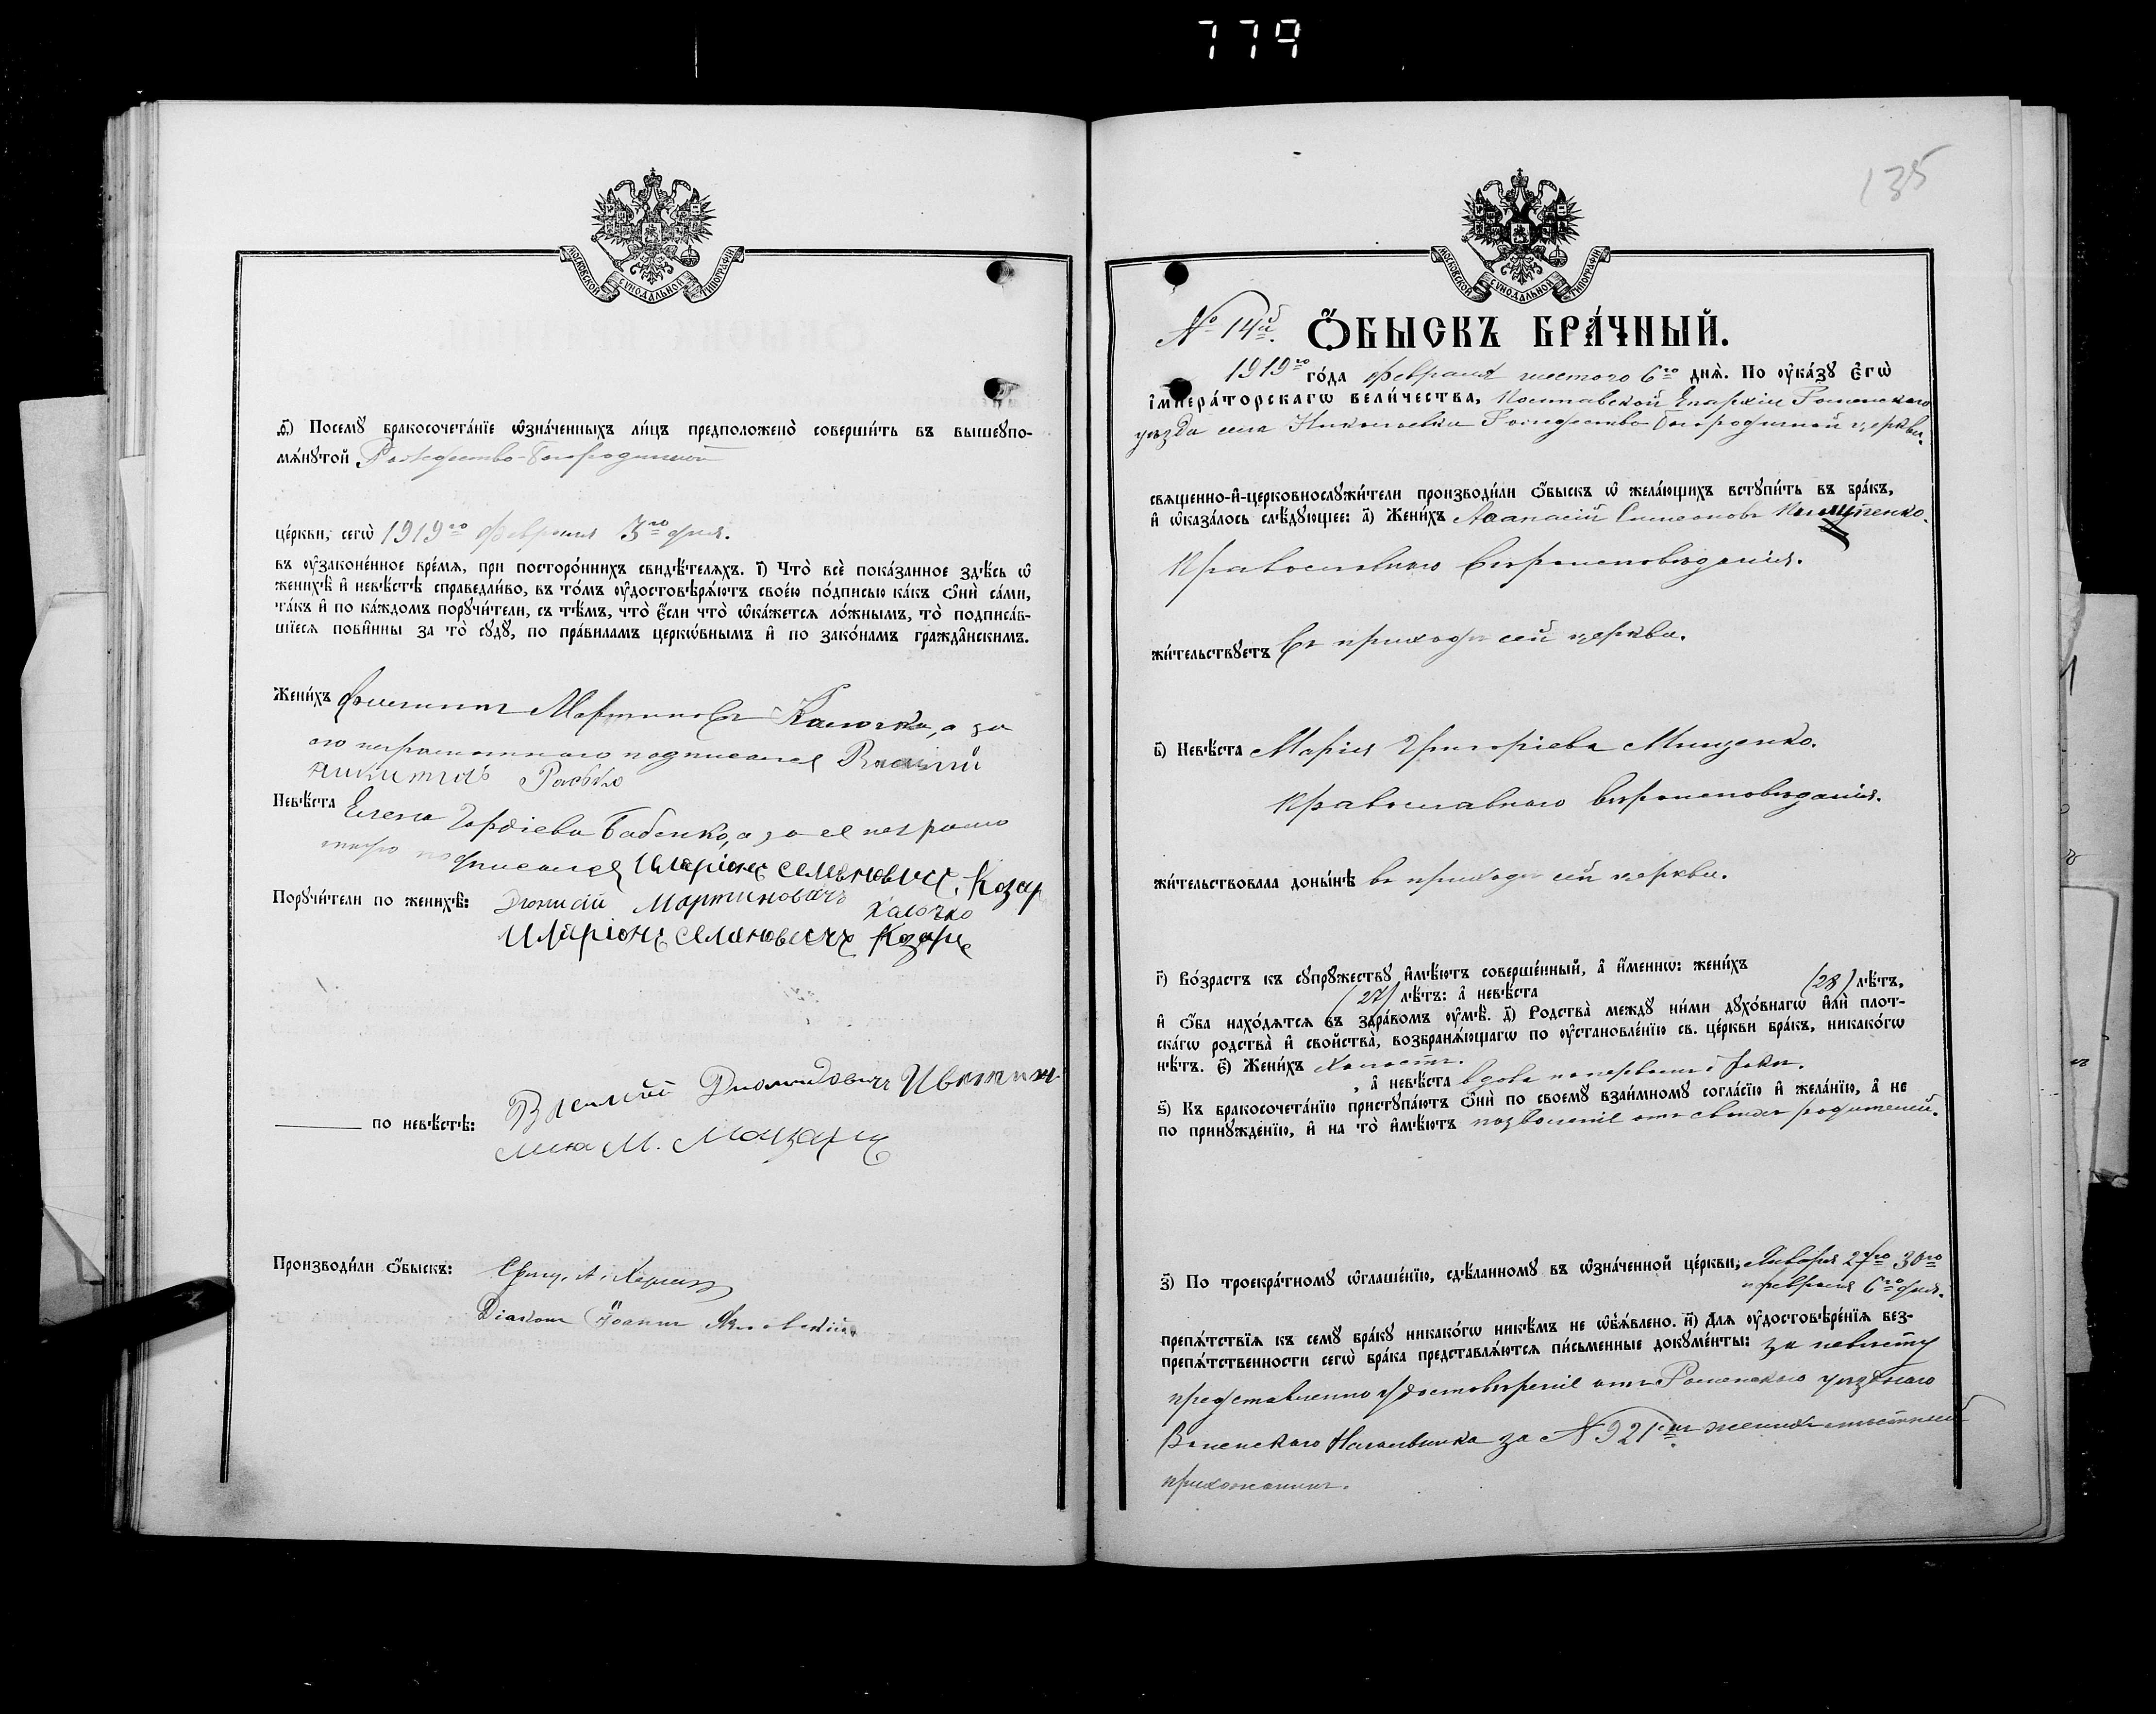 779
МОСКОВСКОЙ СѴНОДАЛЬНОЙ ТИПОГРАФІИ
ѳ҃) Посемꙋ̀ бракосочета́нїе ѡ҆зна́ченныхъ ли́цъ предположено̀ соверши́ть въ вышеꙋпо-
мѧ́нꙋтой Рождество-Богородичной
це́ркви, сегѡ̀ 1919го февраля 3го дня.
въ ᲂу҆зако́ненное вре́мѧ, при посторо́ннихъ свидѣ́телѧхъ. і҃) Что̀ всѐ пока́занное здѣ́сь ѡ҆
женихѣ̀ и҆ невѣ́стѣ справедли́во, въ то́мъ ᲂу҆достовѣрѧ́ютъ свое́ю по́дписью ка́къ ѻ҆нѝ са́ми,
та́къ и҆ по ка́ждомъ порꙋчи́тели, съ тѣ́мъ, что̀ є҆́сли что̀ ѡ҆ка́жетсѧ ло́жнымъ, то̀ подписа́в-
шїесѧ пови́нны за то̀ сꙋдꙋ̀, по пра́виламъ церко́внымъ и҆ по зако́намъ гражда́нскимъ.
Жени́хъ Мартиновъ Калочко, а за
его неграмотнаго подписался Василий
Никитовъ
Невѣ́ста Елена Гордіева Бабенко, а за ее неграмо
тную подписался Иларіонъ Семеновичъ Козар
Порꙋчи́тели по женихѣ̀: Діонисій Мартиновичъ
Калочко
Иларіонъ Семеновичъ Козарь
по невѣ́стѣ: Василій Диомидовичъ
М.
Производи́ли ѻ҆́быскъ: Свящ. А.
Діаконъ Іоаннъ
135
МОСКОВСКОЙ СѴНОДАЛЬНОЙ ТИПОГРАФІИ
№ 14й. Ѻ҆́БЫСКЪ БРА́ЧНЫЙ.
1919го го́да февраля шестого 6го днѧ̀. По ᲂу҆ка́зꙋ є҆гѡ̀
і҆мпера́торскагѡ вели́чества, Полтавской Епархіи Роменскаго
уѣзда села Николаевки Рождество-Богородичной церкви.
свѧще́нно-и҆-церковнослꙋжи́тели производи́ли ѻ҆́быскъ ѡ҆ жела́ющихъ встꙋпи́ть въ бра́къ,
и҆ ѡ҆каза́лось слѣ́дꙋющее: а҃) Жени́хъ Аѳанасій Симеоновъ
Православнаго вѣроисповѣданія.
жи́тельствꙋетъ въ приходѣ сей церкви.
в҃) Невѣ́ста Марія Григоріева Мищенко.
Православнаго вѣроисповѣданія.
жи́тельствовала доны́нѣ въ приходѣ сей церкви.
г҃) Во́зрастъ къ сꙋпрꙋ́жествꙋ и҆мѣ́ютъ соверше́нный, а҆ и҆́меннѡ: жени́хъ (28) лѣ́тъ,
(27) лѣ́тъ: а҆ невѣ́ста
и҆ ѻ҆́ба нахо́дѧтсѧ въ здра́вомъ ᲂу҆мѣ̀. д҃) Родства̀ междꙋ̀ ни́ми дꙋхо́внагѡ и҆лѝ пло́т-
скагѡ родства̀ и҆ сво́йства̀, возбранѧ́ющагѡ по ᲂу҆становле́нїю св. це́ркви бра́къ, никако́гѡ
нѣ́тъ. є҃) Жени́хъ холостъ.
, а҆ невѣ́ста вдова по первомъ бракѣ.
ѕ҃) Къ бракосочета́нїю пристꙋпа́ютъ ѻ҆нѝ по своемꙋ̀ взаи́мномꙋ согла́сїю и҆ жела́нїю, а҆ не
по принꙋжде́нїю, и҆ на то̀ и҆мѣ́ютъ позволеніе отъ своихъ родителей.
з҃) По троекра́тномꙋ ѡ҆глаше́нїю, сдѣ́ланномꙋ въ ѡ҆зна́ченной це́ркви, Января 27го 30го
и февраля 6го дня.
препѧ́тствїѧ къ семꙋ̀ бра́кꙋ никако́гѡ никѣ́мъ не ѡ҆б̾ѧ́влено. и҃) Длѧ ᲂу҆достовѣре́нїѧ без-
препѧ́тственности сегѡ̀ бра́ка представлѧ́ютсѧ пи́сьменные докꙋме́нты: за невѣсту
представленно удостовѣреніе отъ Роменскаго уѣзднаго
Воиенскаго Начальника за № 921мъ женихъ мѣстный
прихожанинъ.